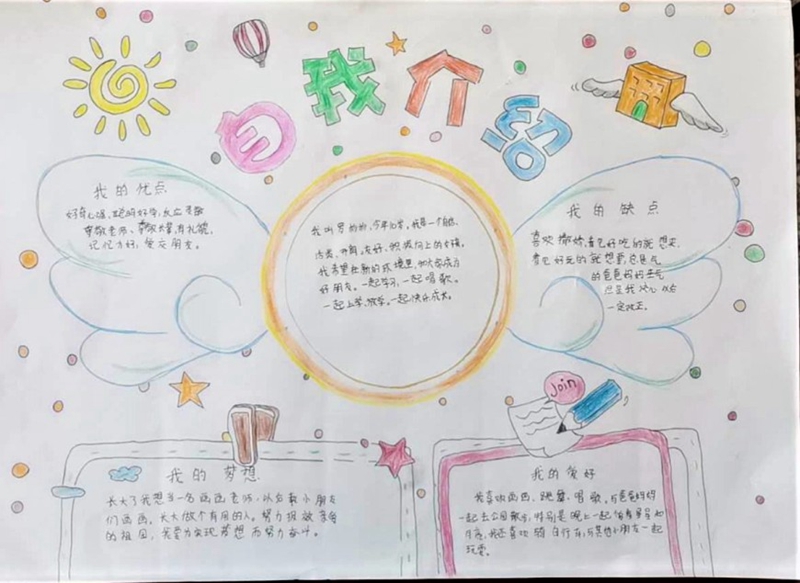 自我介绍
我的优点
好奇心强、聪明好学、反应灵敏
尊敬老师、孝敬长辈、有礼貌,
记忆力好,爱交朋友。
我叫罗韵,今年七岁,我是一个自信、
活泼、开朗、友好、积极向上的女孩。
我希望在新的环境里,和大家成为
好朋友。一起学习,一起唱歌。
一起上学、放学。一起快乐成长。
我的缺点
喜欢撒娇,看到好吃的就想买,
看到好玩的就想要,总是气
的爸爸妈妈生气
但是我决心以后
一定改正。
Join
我的梦想
长大了我想当一名画画老师,以后教小朋友
们画画。长大做个有用的人。努力报效
的祖国,我要为实现梦想而努力奋斗。
我的爱好
我喜欢画画、跳舞、唱歌。与爸爸妈妈
一起去公园散步,特别是晚上一起看星星和
月亮,我还喜欢骑自行车,与其他小朋友一起
玩耍。